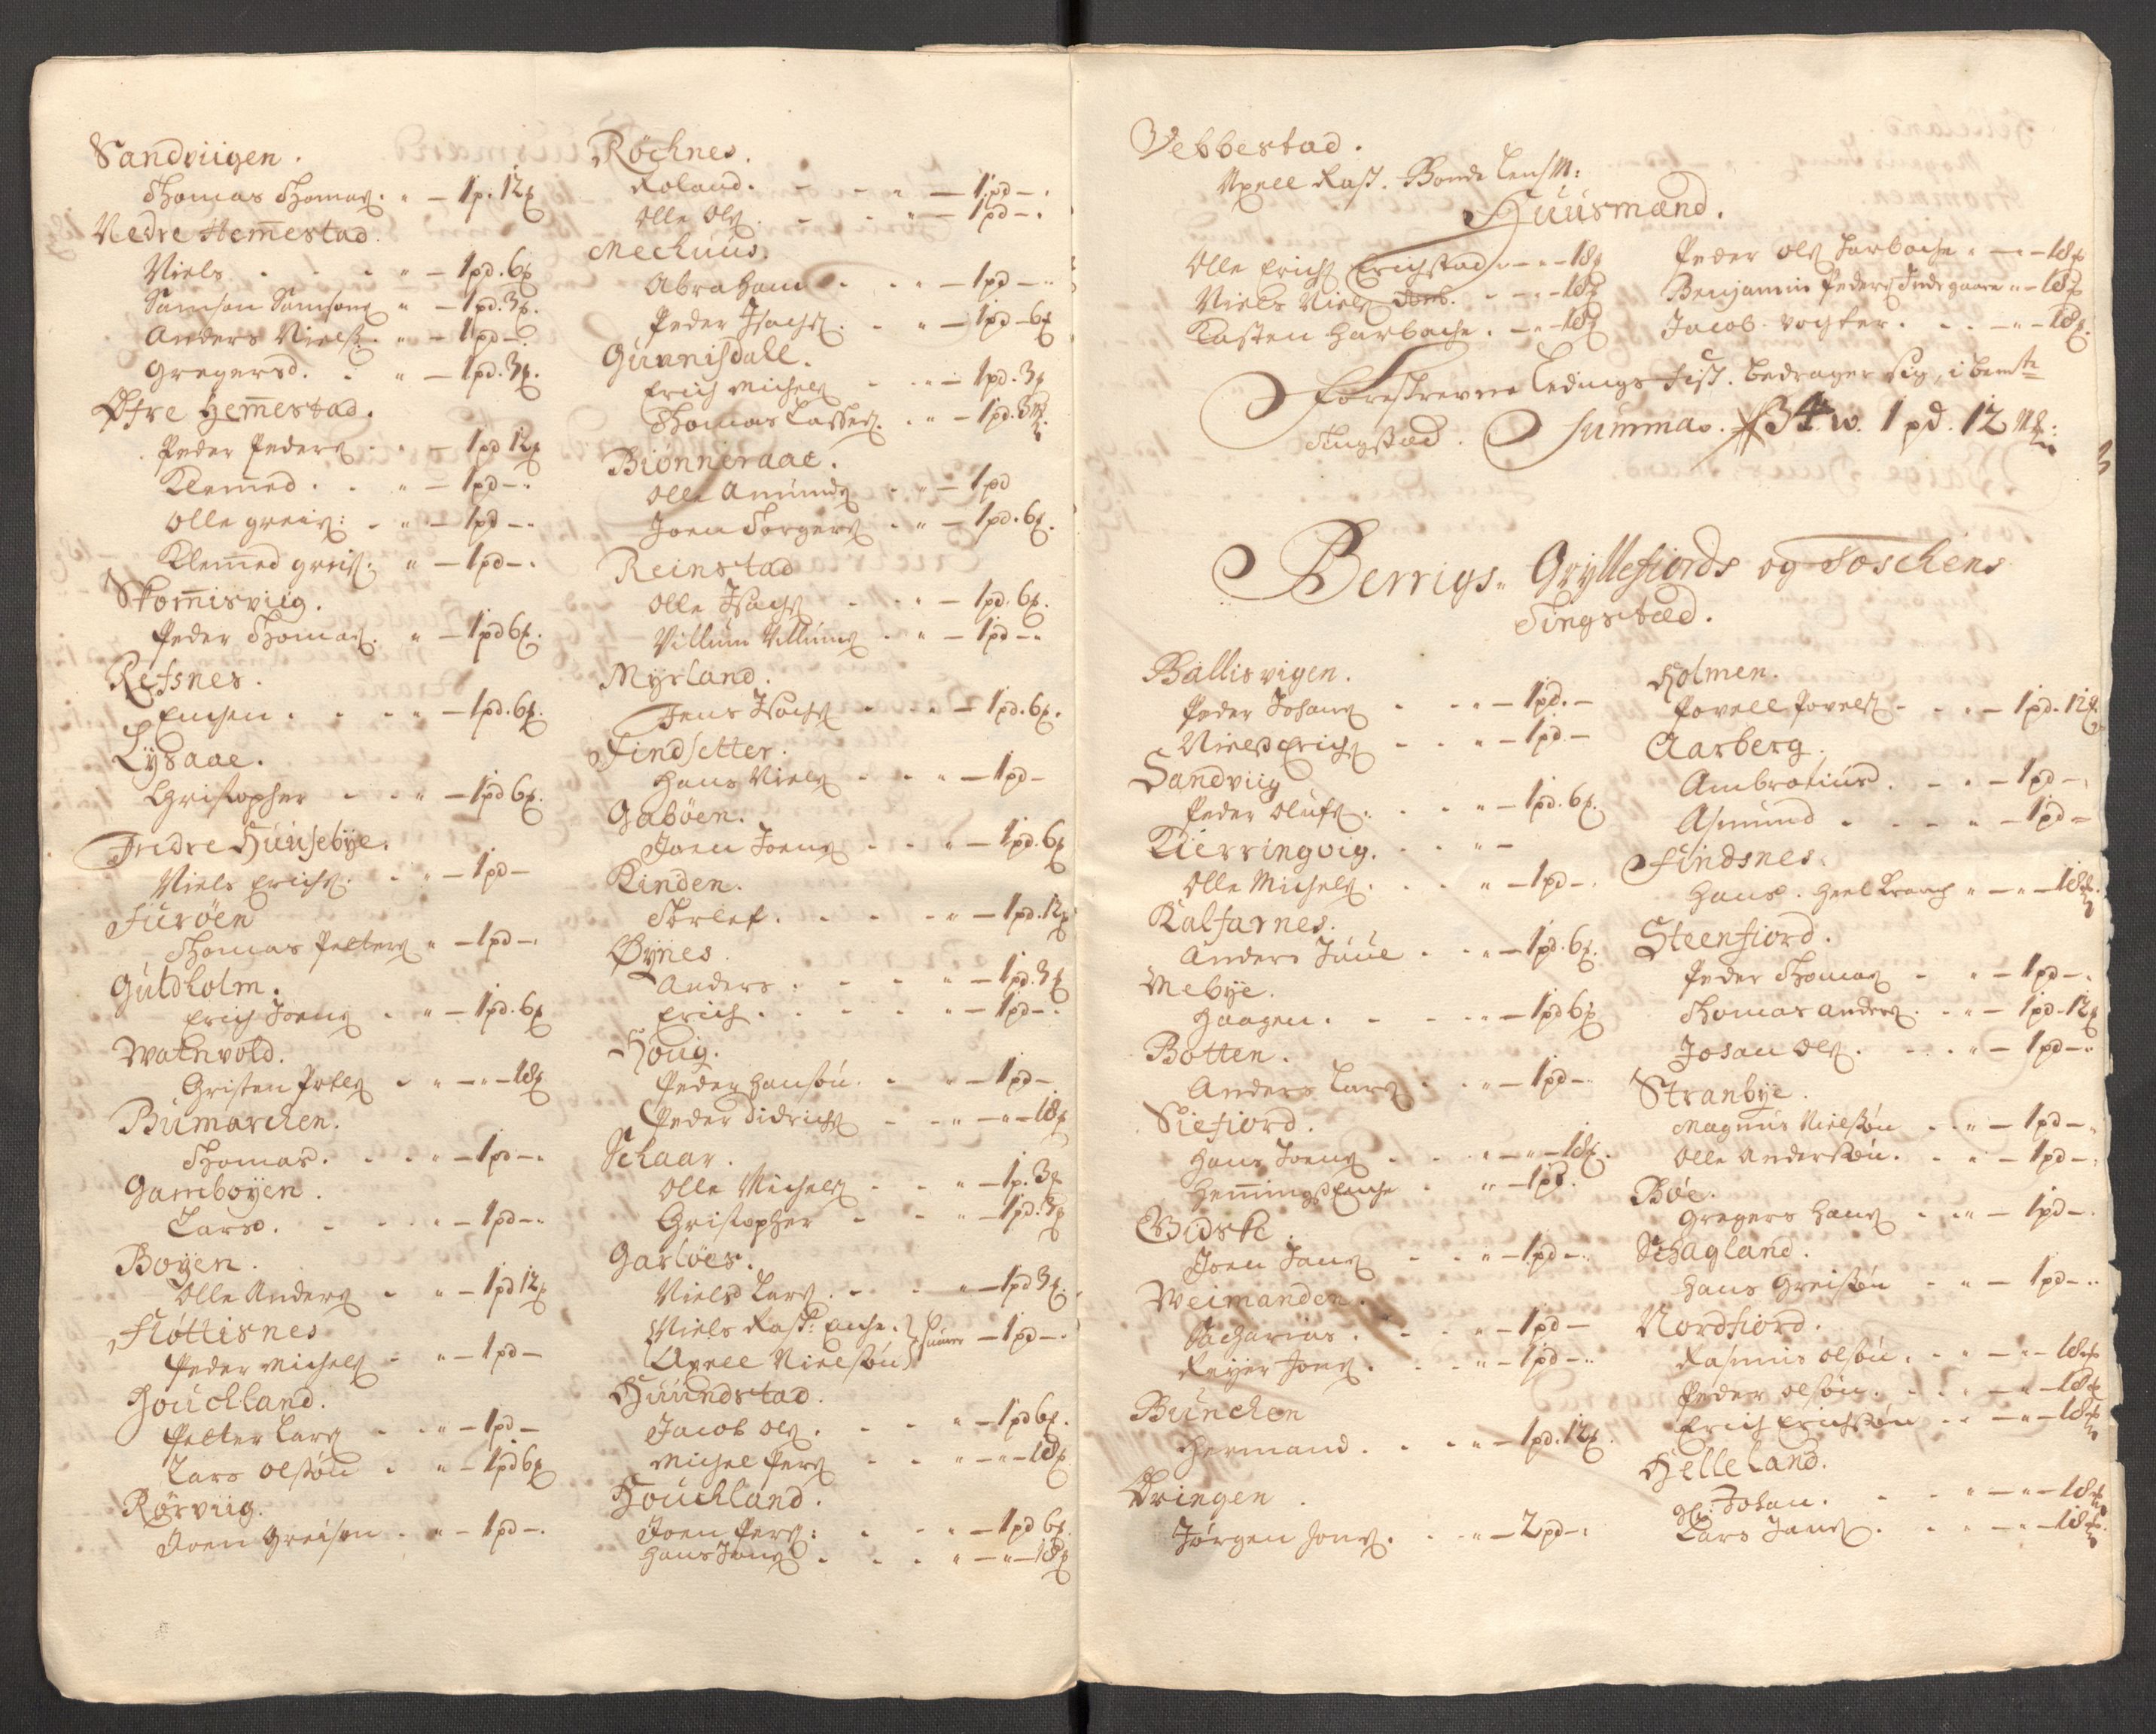 Sandviigen.
Thomas Thomas. " — 1 p. 12
Nedre Hemestad.
Niels . . . " — 1 pd. 6
Samson Samsons " — 1 pd. 3
Anders Niels. " — 1 pd —
Gregers. . " — 1 pd. 3
Øfre Hemestad.
Peder Peders . . — 1 pd 12
Klemed . . " — 1 pd —
Olle greis: . " — 1 pd —
Klemed greis. " — 1 pd —
Skomisviig.
Peder Thomas. " — 1 pd 6
Refsnes.
— 1 pd. 6
Lysaae.
Christopher . . " — 1 pd 6
Indre Huusebÿe.
Niels Erichs. . " — 1 pd —
Furöen
Thomas Petters " — 1 pd —
Guldholm.
Erich Joens . " — 1 pd. 6
Watnvold.
Christen . " — " — 18
Bumarchen.
Thomas. . . " — 1 pd —
Gamboÿen.
Lars. . . . — 1 pd —
Boÿen.
Olle Anders . " — 1 pd 12
Flöttisnes
Peder Michels . " — 1 pd —
Houchland.
Petter Lars . . " — 1 pd —
Lars Olsson . " — 1 pd 6
Rörviig.
Joen Greisen . " — 1 pd —
Röchnes.
Roland. . . " — 1 pd —
Olle Ols . . . " — 1 pd —
Mechuus.
Abraham . . " — 1 pd —
Peder Isachs. . " — 1 pd — 6
Gunnisdall.
Erich Michels . . " — 1 pd. 3
Thomas Lasses. . " — 1 pd. 3
Biönneraae.
Olle Amunds . " — 1 pd
Joen Torgers . " — 1 pd. 6
Reinstad
Olle Isachs . . . — 1 pd. 6
Villum Villums . " — 1 pd —
Mÿrland.
Jens Isachs . . . — 1 pd. 6
Findsetter.
Hans Niels . . " — 1 pd —
Gaböen.
Joen Joens . . " — 1 pd. 6
Kinden.
Torlef. . . . " — 1 pd. 12
Øÿnes
Anders . . . " — 1 pd. 3
Erich . . . . " — 1 pd —
Houg.
Peder Hansön. . " — 1 pd —
Peder Didrichs . . " — " — 18
Schaar.
Olle Michels . . " — 1 p. 3
Christopher . . " — 1 pd. 3
Garlöes.
Niels Lars . . " — 1 pd 3
Niels Rast:
Axell Nielsön — 1 pd —
Huundstad.
Jacob Ols . . . " — 1 pd 6
Michel Pers . . " — " — 18
Houchland.
Joen Pers: . . " — 1 pd 6
Hans Jons . . . " — " — 18
Vebbestad.
Axell Rast. Bonde Lensm:
Huusmænd.
Olle Erichs Erichstad " — " — 18
Niels Niels . . — " — 18
Casten Harbache. — " — 18
Peder Ols Harbache " — " — 18
Benjamin Peders " — 18
Jacob Vogter. . . — " — 18
Foreskrevne Ledings Fisk. bedrager sig, i bemte
Tingstæd. Summa. 34 w. 1 pd. 12
Berrigs- Grÿllefiords og Toschens
Tingstæd.
Ballisvigen.
Peder Johans . . " — 1 pd. —
Niels Erichs . . " — 1 pd —
Sandviig
Peder Olufs. . . " — 1 pd. 6
Kierringvig. . . " —
Olle Michels. . . " — 1 pd —
Kalfarnes.
Anders Juul . . " — 1 pd. 6
Mebÿe.
Haagen. . . " — 1 pd 6
Botten.
Anders Lars . . " — 1 pd —
Siefiord.
Hans Joens . . . " — " — 18
Hemings Enche . " — 1 pd.
Joen Jons . . " — 1 pd —
Weimanden.
Sacharias . . . " — 1 pd —
Reÿer Jons . . " — 1 pd —
Bunchen
Hermand. . . " — 1 pd. 12
Øringen.
Jørgen Jons. . " — 2 pd —
Holmen.
Povell Povels . . " — 1 pd. 12
Aarberg.
Ambrosius. . . — 1 pd —
Asmund . . . " — 1 pd —
Findsnes.
Hans. " — " — 18
Steenfiord.
Peder Thomas . " — 1 pd —
Thomas Anders. . " — 1 pd. 12
Johan Ols. . . . " — 1 pd —
Stranbÿe.
Magnus Nielsön . " — 1 pd —
Olle Andersön. . . — 1 pd —
Böe.
Gregers Hans . . " — 1 pd —
Schagland.
Hans Greisön . " — 1 pd —
Nordfiord.
Rasmus Olsön. . " — " — 18
Peder Olsön. . . " — " — 18
Erich Erichsön . " — " — 18
Helleland.
gl: Johan. . . " — " — 18
Lars Jons . . . " — " — 18